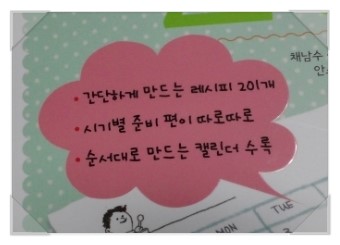 채남수
안소
• 간단하게 만드는 레시피 201개
• 시기별 준비 편이 따로따로
• 순서대로 만드는 캘린더 수록
MON
TUE
3